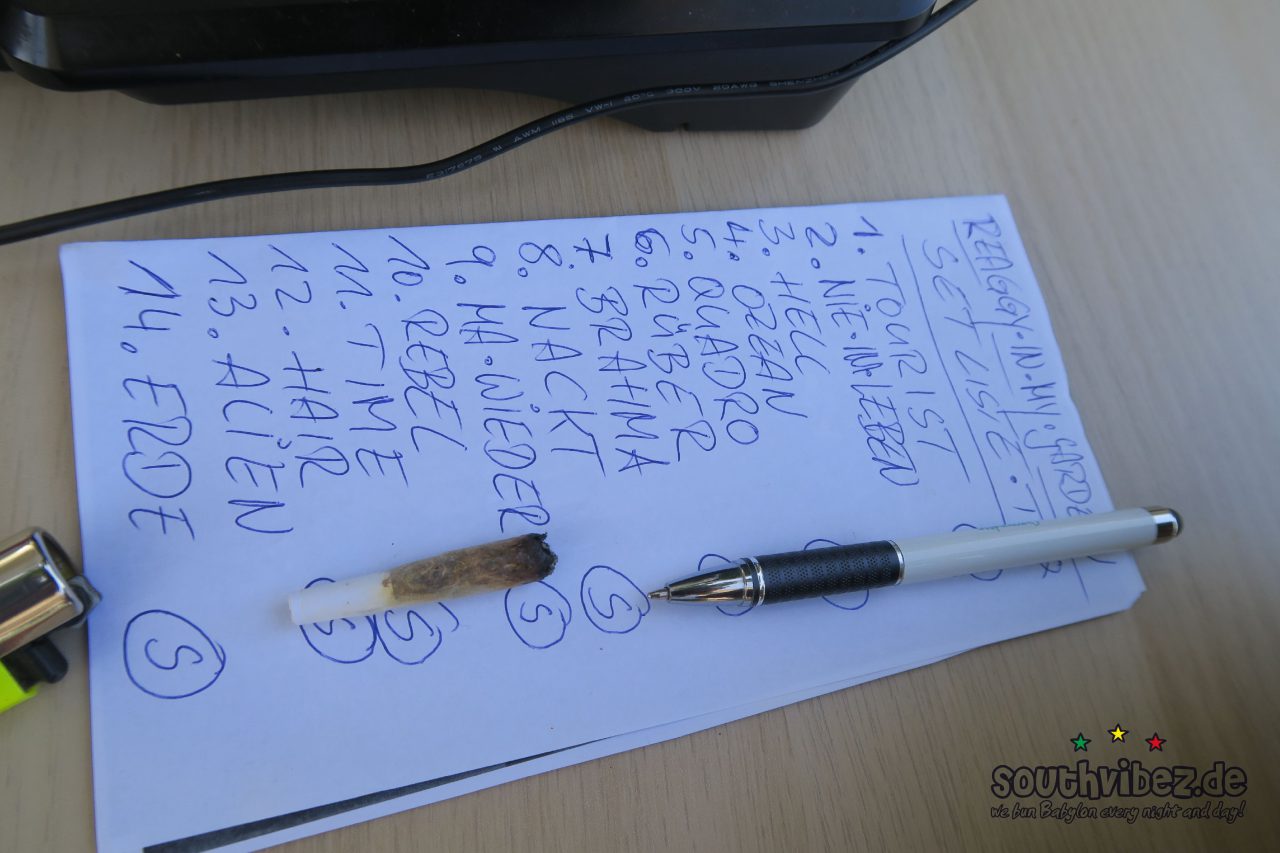 REAGGY·IN·MY·GARDEN
SET LISTE·T
1. TOURIST
2. NIE·IN·LEBEN
3. HELL
4. OZEAN
5. QUADRO
6. RÜBER
7. BRAHMA
8. NACKT
9. MA·WIEDER
10. REBEL
11. TIME
12. HAIR
13. ALIEN
14. ERDE
S
S
S
S
S
AWM
VW-1 80°C 300V
SHENZHEN
southvibez.de
we bun Babylon every night and day!